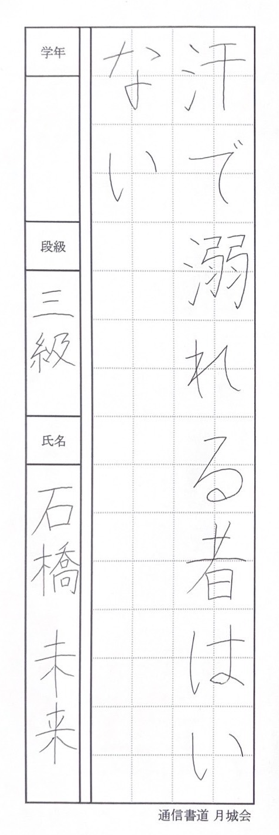 汗で溺れる者はい
ない
学年
段級
三級
氏名
石橋 未来
通信書道 月城会